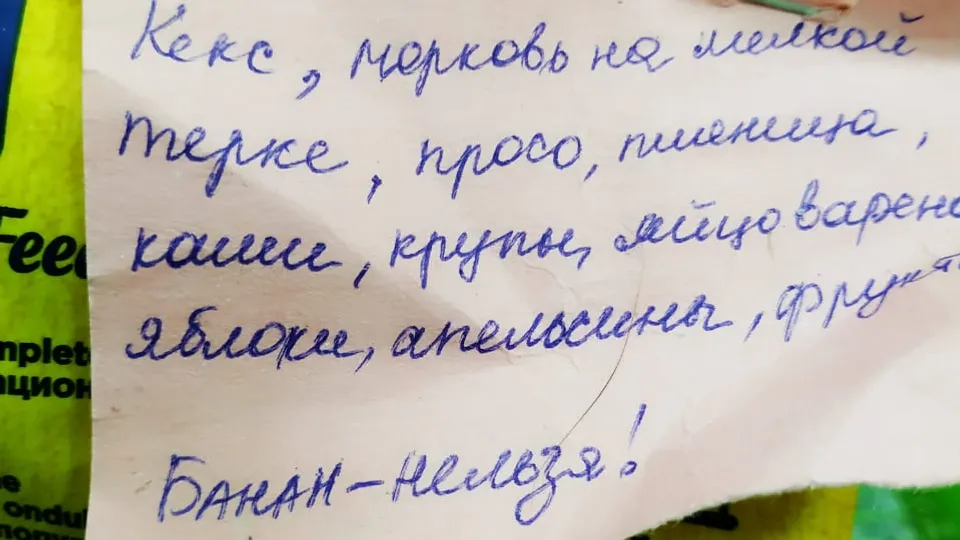 Кекс, морковь на мелкой
терке, просо, пшеница,
каши, крупы, яйцо варено
яблоки, апельсины, фрукт
Банан – нельзя!
Feed
mplet
ацион
ondul